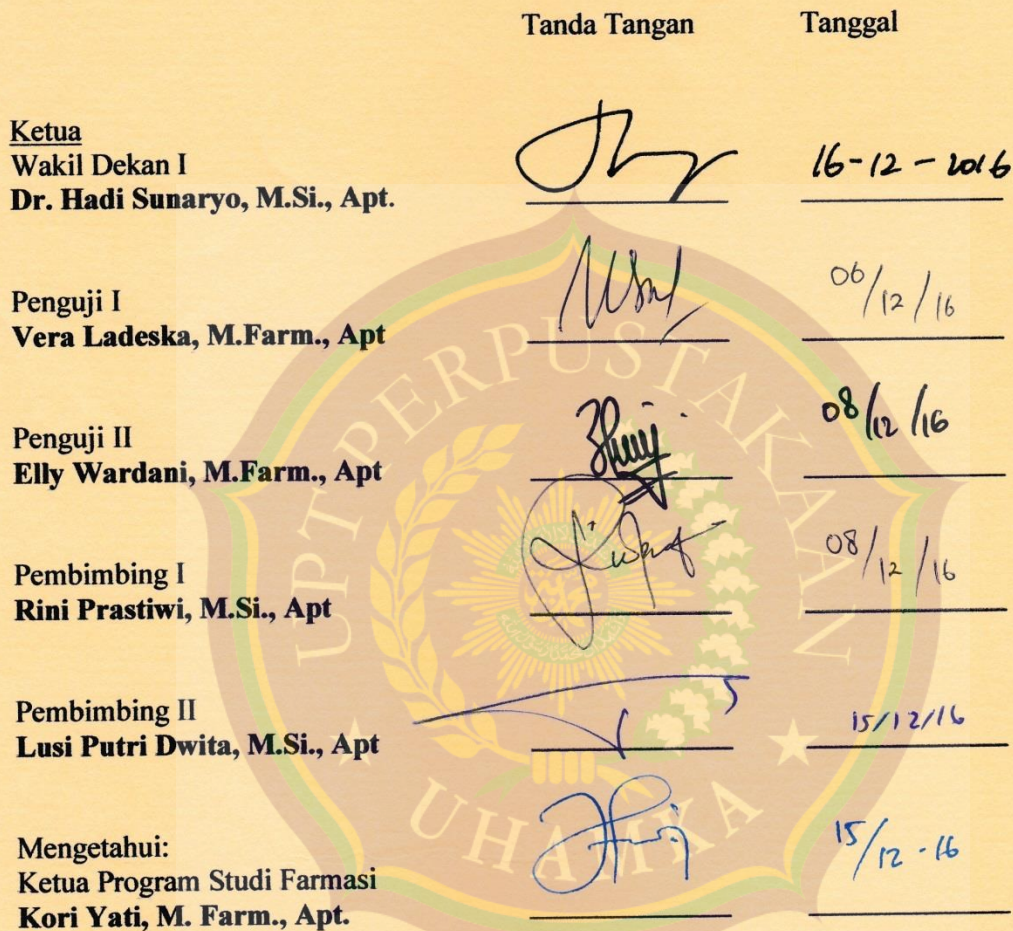 Tanda Tangan Tanggal
Ketua
Wakil Dekan I
Dr. Hadi Sunaryo, M.Si., Apt.
16-12-2016
Penguji I
Vera Ladeska, M.Farm., Apt
06/12/16
Penguji II
Elly Wardani, M.Farm., Apt
08/12/16
Pembimbing I
Rini Prastiwi, M.Si., Apt
08/12/16
Pembimbing II
Lusi Putri Dwita, M.Si., Apt
15/12/16
Mengetahui:
Ketua Program Studi Farmasi
Kori Yati, M. Farm., Apt.
15/12-16
UPT PERPUSTAKAAN
UHAMKA